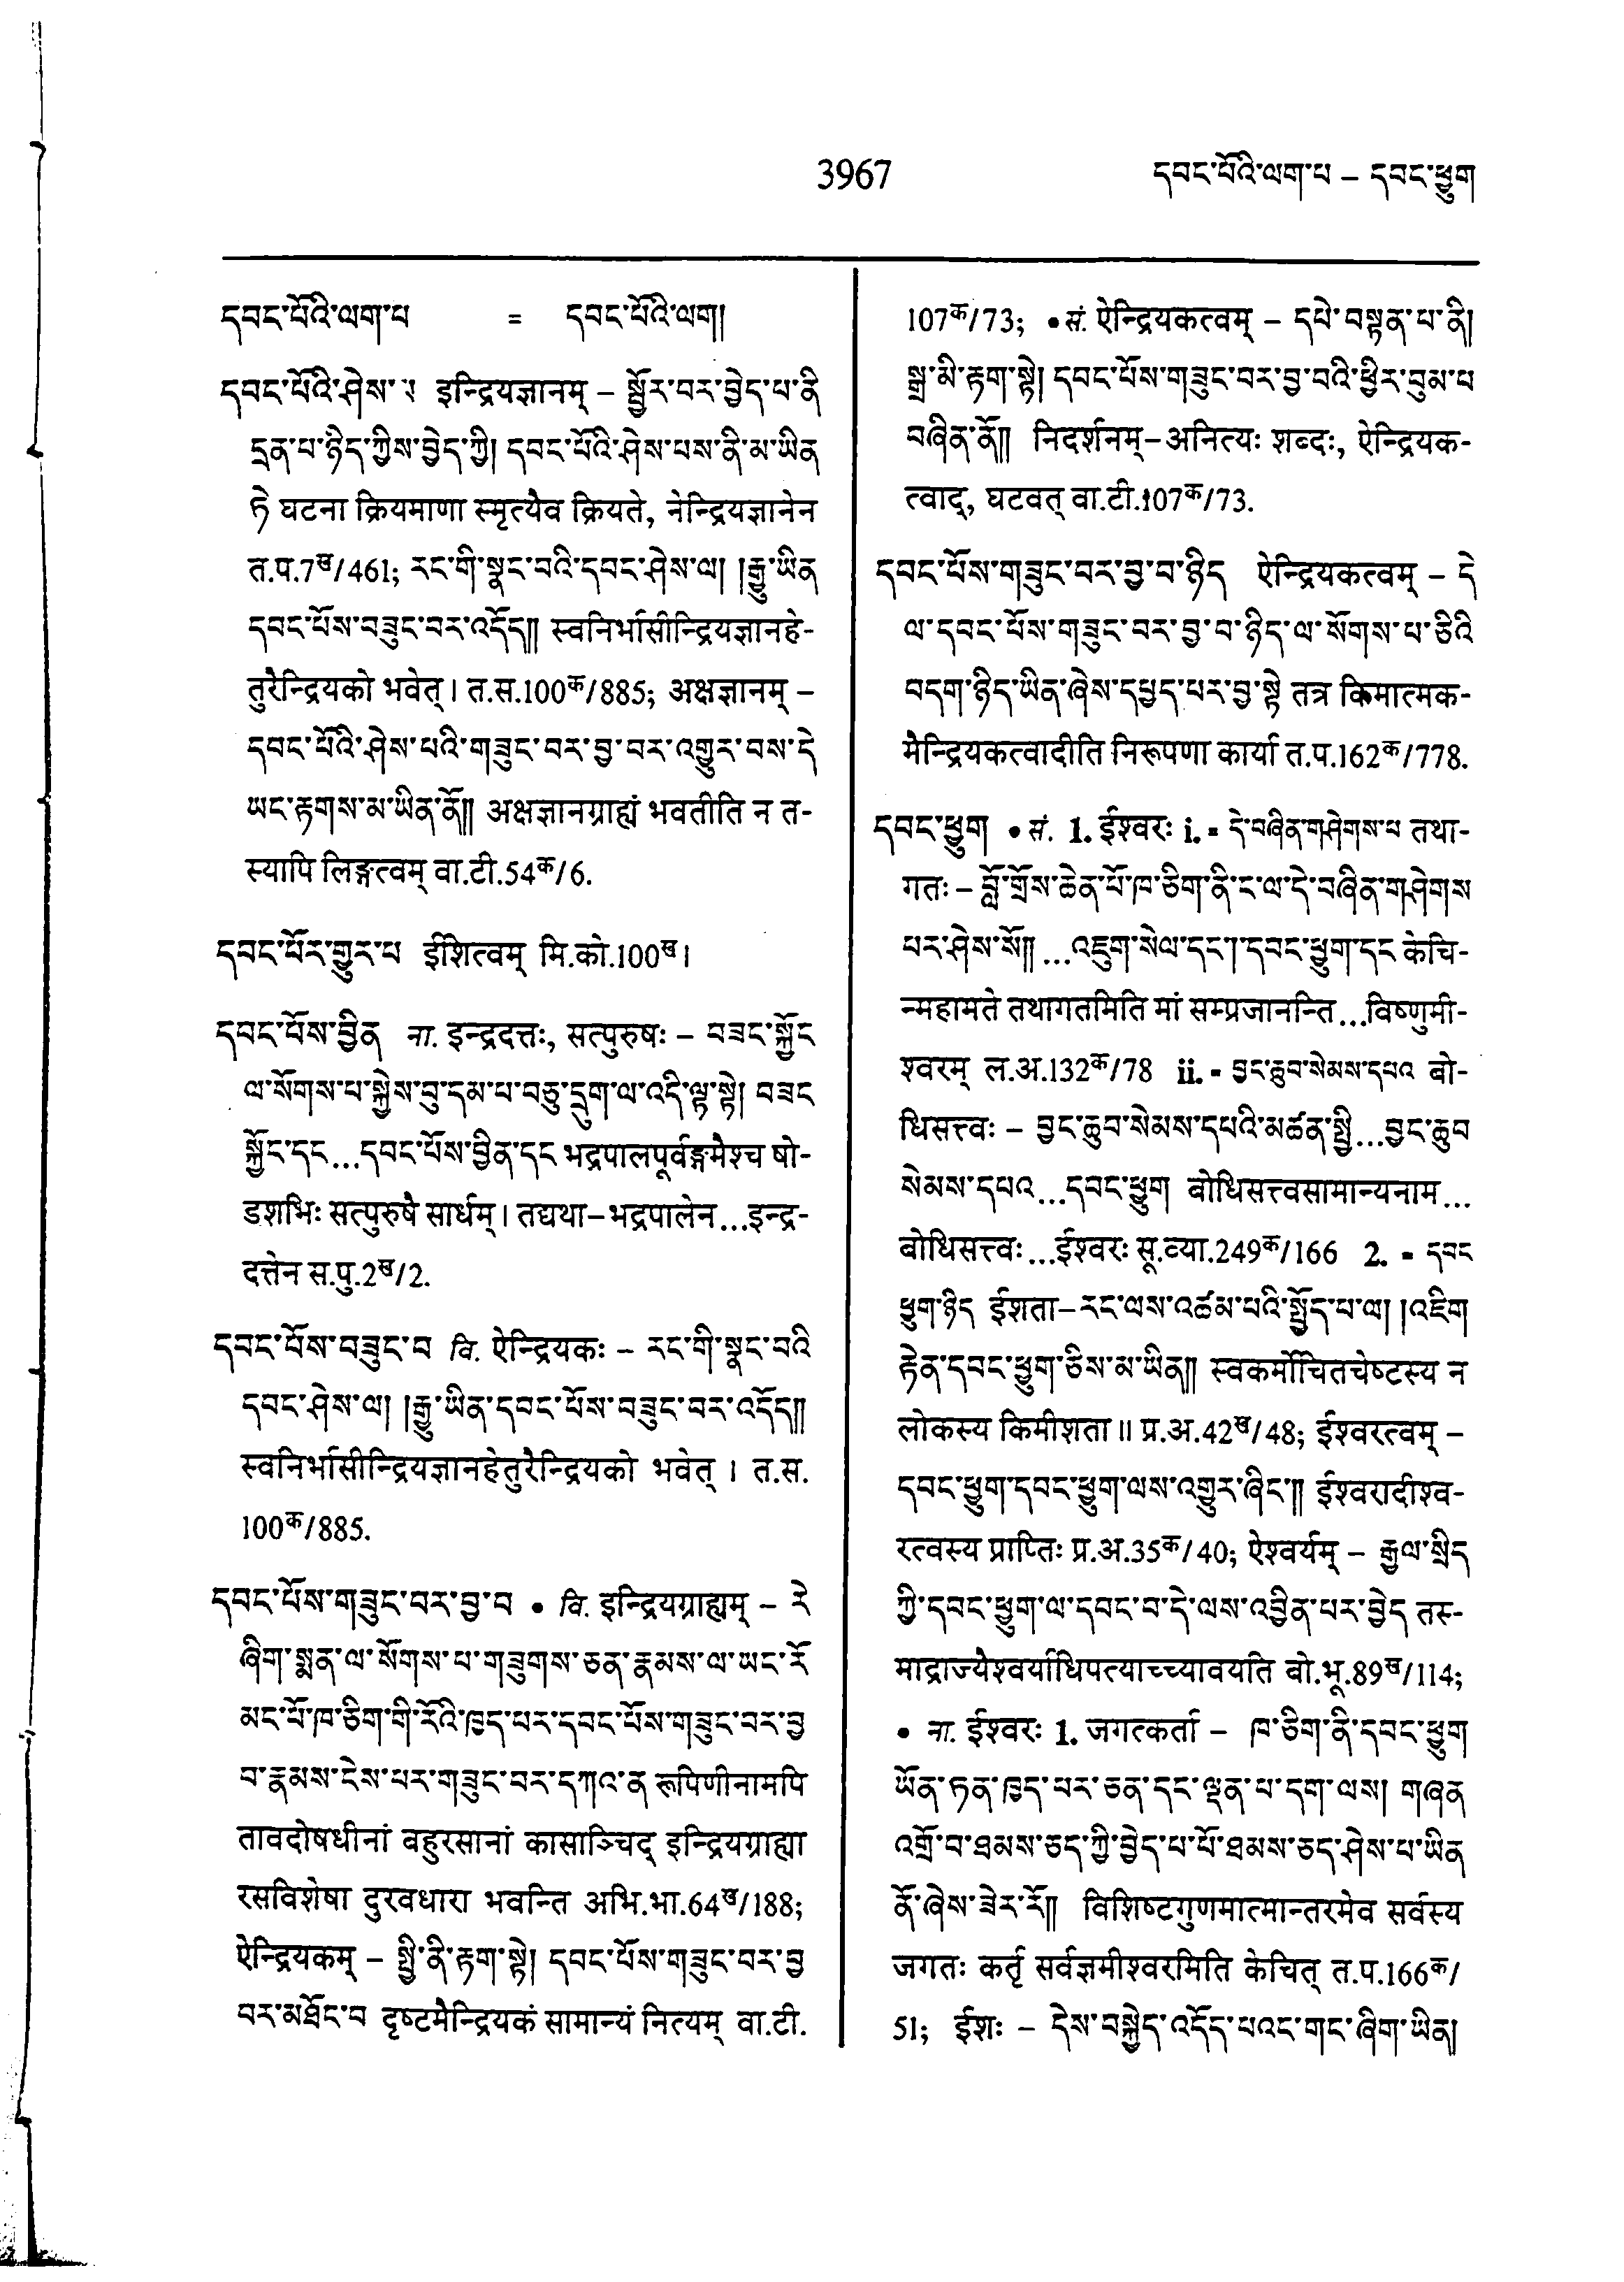 3967
དབང་པོའི་ལག་པ – དབང་ཕྱུག
དབང་པོའི་ལག་པ = དབང་པོའི་ལག།
དབང་པོའི་ཤེས་ इन्द्रियज्ञानम् – སྦྱོར་བར་བྱེད་པ་ནི
དྲན་པ་ཉིད་ཀྱིས་བྱེད་ཀྱི། དབང་པོའི་ཤེས་པས་ནི་མ་ཡིན
ཏེ घटना क्रियमाणा स्मृत्यैव क्रियते, नेन्द्रियज्ञानेन
त.प.7ख/461; རང་གི་སྣང་བའི་དབང་ཤེས་ལ། །རྒྱུ་ཡིན
དབང་པོས་བཟུང་བར་འདོད།། स्वनिर्भासीन्द्रियज्ञानहे-
तुरैन्द्रियको भवेत्। त.स.100क/885; अक्षज्ञानम् –
དབང་པོའི་ཤེས་པའི་གཟུང་བར་བྱ་བར་འགྱུར་བས་དེ
ཡང་རྟགས་མ་ཡིན་ནོ།། अक्षज्ञानग्राह्यं भवतीति न त-
स्यापि लिङ्गत्वम् वा.टी.54क/6.
དབང་པོར་གྱུར་པ ईशित्वम् मि.को.100ख।
དབང་པོས་བྱིན ना. इन्द्रदत्तः, सत्पुरुषः – བཟང་སྐྱོང
ལ་སོགས་པ་སྐྱེས་བུ་དམ་པ་བཅུ་དྲུག་ལ་འདི་ལྟ་སྟེ། བཟང
སྐྱོང་དང...དབང་པོས་བྱིན་དང भद्रपालपूर्वङ्गमैश्च षो-
डशभिः सत्पुरुषै सार्धम्। तद्यथा–भद्रपालेन...इन्द्र-
दत्तेन स.पु.2ख/2.
དབང་པོས་བཟུང་བ वि. ऐन्द्रियकः – རང་གི་སྣང་བའི
དབང་ཤེས་ལ། །རྒྱུ་ཡིན་དབང་པོས་བཟུང་བར་འདོད།།
स्वनिर्भासीन्द्रियज्ञानहेतुरैन्द्रियको भवेत् । त.स.
100क/885.
དབང་པོས་གཟུང་བར་བྱ་བ • वि. इन्द्रियग्राह्यम् – རེ
ཞིག་སྨན་ལ་སོགས་པ་གཟུགས་ཅན་རྣམས་ལ་ཡང་རོ
མང་པོ་ཁ་ཅིག་གི་རོའི་ཁྱད་པར་དབང་པོས་གཟུང་བར་བྱ
བ་རྣམས་ངེས་པར་གཟུང་བར་དཀའ་ན रूपिणीनामपि
तावदोषधीनां बहुरसानां कासाञ्चिद् इन्द्रियग्राह्या
रसविशेषा दुरवधारा भवन्ति अभि.भा.64ख/188;
ऐन्द्रियकम् – སྤྱི་ནི་རྟག་སྟེ། དབང་པོས་གཟུང་བར་བྱ
བར་མཐོང་བ दृष्टमैन्द्रियकं सामान्यं नित्यम् वा.टी.
107क/73; • सं. ऐन्द्रियकत्वम् – དཔེ་བསྟན་པ་ནི།
སྒྲ་མི་རྟག་སྟེ། དབང་པོས་གཟུང་བར་བྱ་བའི་ཕྱིར་བུམ་པ
བཞིན་ནོ།། निदर्शनम्–अनित्यः शब्दः, ऐन्द्रियक-
त्वाद्, घटवत् वा.टी.107क/73.
དབང་པོས་གཟུང་བར་བྱ་བ་ཉིད ऐन्द्रियकत्वम् – དེ
ལ་དབང་པོས་གཟུང་བར་བྱ་བ་ཉིད་ལ་སོགས་པ་ཅིའི
བདག་ཉིད་ཡིན་ཞེས་དཔྱད་པར་བྱ་སྟེ तत्र किमात्मक-
मैन्द्रियकत्वादीति निरूपणा कार्या त.प.162क/778.
དབང་ཕྱུག • सं. 1. ईश्वरः i. = དེ་བཞིན་གཤེགས་པ तथा-
गतः – བློ་གྲོས་ཆེན་པོ་ཁ་ཅིག་ནི་ང་ལ་དེ་བཞིན་གཤེགས
པར་ཤེས་སོ།། ...འཇུག་སེལ་དང་། དབང་ཕྱུག་དང केचि-
न्महामते तथागतमिति मां सम्प्रजानन्ति...विष्णुमी-
श्वरम् ल.अ.132क/78 ii. = བྱང་ཆུབ་སེམས་དཔའ बो-
धिसत्त्वः – བྱང་ཆུབ་སེམས་དཔའི་མཚན་སྤྱི...བྱང་ཆུབ
སེམས་དཔའ...དབང་ཕྱུག बोधिसत्त्वसामान्यनाम...
बोधिसत्त्वः...ईश्वरः सू.व्या.249क/166 2. = དབང
ཕྱུག་ཉིད ईशता–རང་ལས་འཚམ་པའི་སྤྱོད་པ་ལ། །འཇིག
རྟེན་དབང་ཕྱུག་ཅིས་མ་ཡིན།། स्वकर्मोचितचेष्टस्य न
लोकस्य किमीशता॥ प्र.अ.42ख/48; ईश्वरत्वम् –
དབང་ཕྱུག་དབང་ཕྱུག་ལས་འགྱུར་ཞིང་།། ईश्वरादीश्व-
रत्वस्य प्राप्तिः प्र.अ.35क/40; ऐश्वर्यम् – རྒྱལ་སྲིད
ཀྱི་དབང་ཕྱུག་ལ་དབང་བ་དེ་ལས་འབྱིན་པར་བྱེད तस्-
माद्राज्यैश्वर्याधिपत्याच्च्यावयति बो.भू.89ख/114;
• ना. ईश्वरः 1. जगत्कर्ता – ཁ་ཅིག་ནི་དབང་ཕྱུག
ཡོན་ཏན་ཁྱད་པར་ཅན་དང་ལྡན་པ་དག་ལས། གཞན
འགྲོ་བ་ཐམས་ཅད་ཀྱི་བྱེད་པ་པོ་ཐམས་ཅད་ཤེས་པ་ཡིན
ནོ་ཞེས་ཟེར་རོ།། विशिष्टगुणमात्मान्तरमेव सर्वस्य
जगतः कर्तृ सर्वज्ञमीश्वरमिति केचित् त.प.166क/
51; ईशः – དེས་བསྐྱེད་འདོད་པའང་གང་ཞིག་ཡིན།